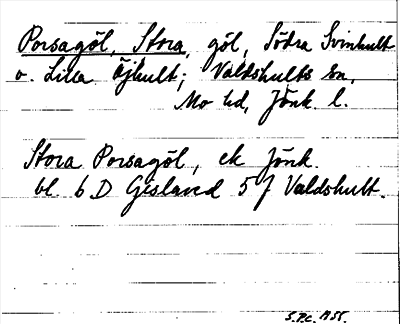 Porsagöl, Stora, göl, Södra Svinhult
o. Lilla Öjhult; Valdshults sn,
Mo hd, Jönk. l.
Stora Porsagöl, ek Jönk.
bl 6 D Gislaved 5 f Valdshult.
S.P.C. 1955.